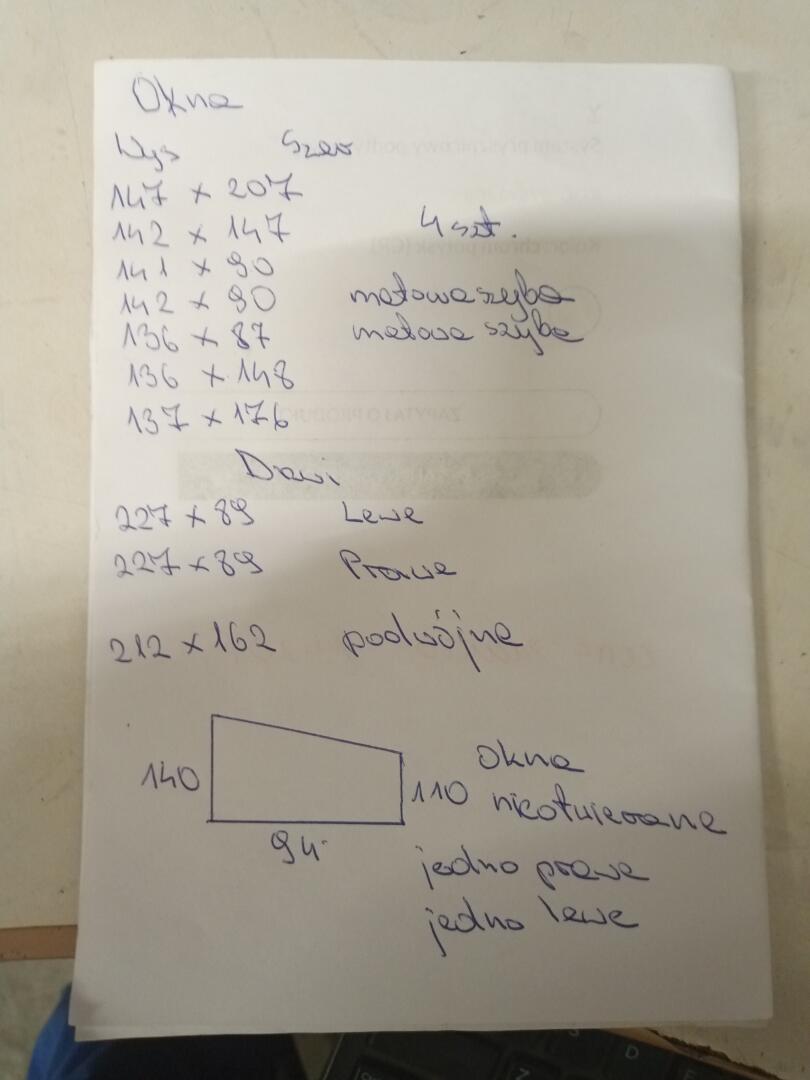 Okna
Wys Szer
147 x 207
142 x 147 4 szt.
141 x 90
142 x 90 matowa szyba
136 x 87 matowa szyba
136 x 148
137 x 176
Drzwi
227 x 89 Lewe
227 x 89 Prawe
212 x 162 podwójne
140
110
94
Okna
nieotwierane
jedno prawe
jedno lewe